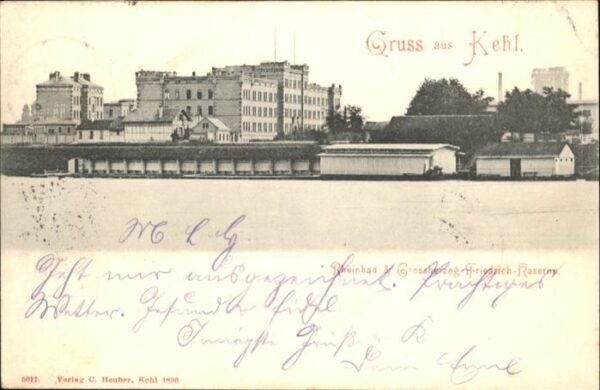 Gruss aus Kehl.
M. l. G.
Rheinbad & Grossherzog-Friedrich-Kaserne.
Geht mir ausgezeichnet. Prächtiges
Wetter. Gesund &
Innigste Grüße & K
Dein Emil
5017. Verlag C. Heuber, Kehl 1898